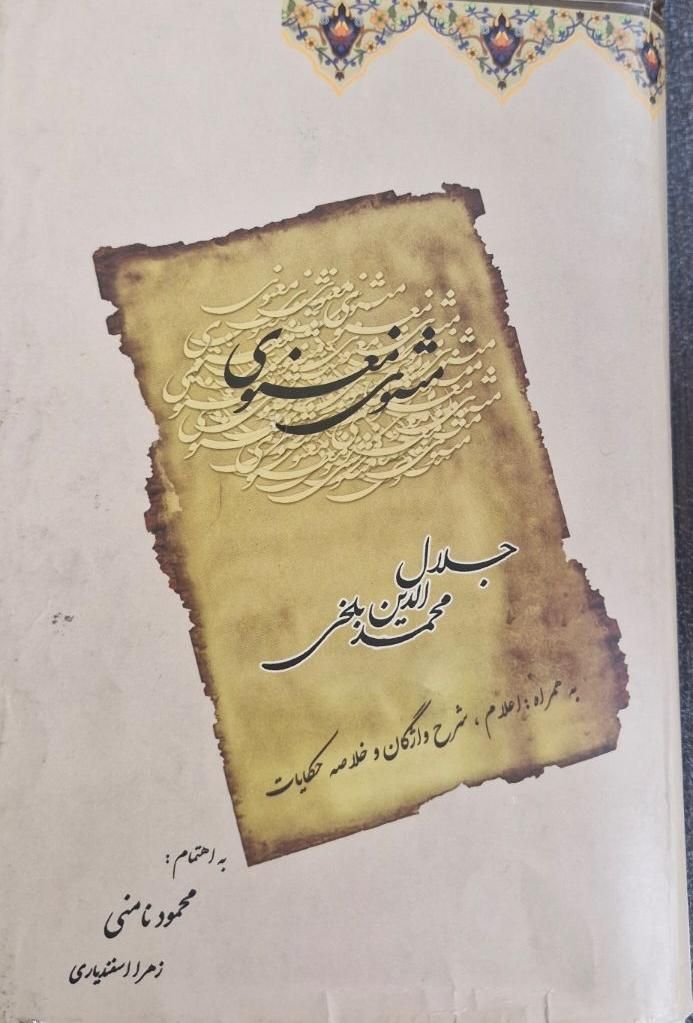 مثنوی معنوی
جلال
الدین
محمد بلخی
به همراه: اعلام، شرح واژگان و خلاصه حکایات
به اهتمام:
محمود نامنی
زهرا اسفندیاری